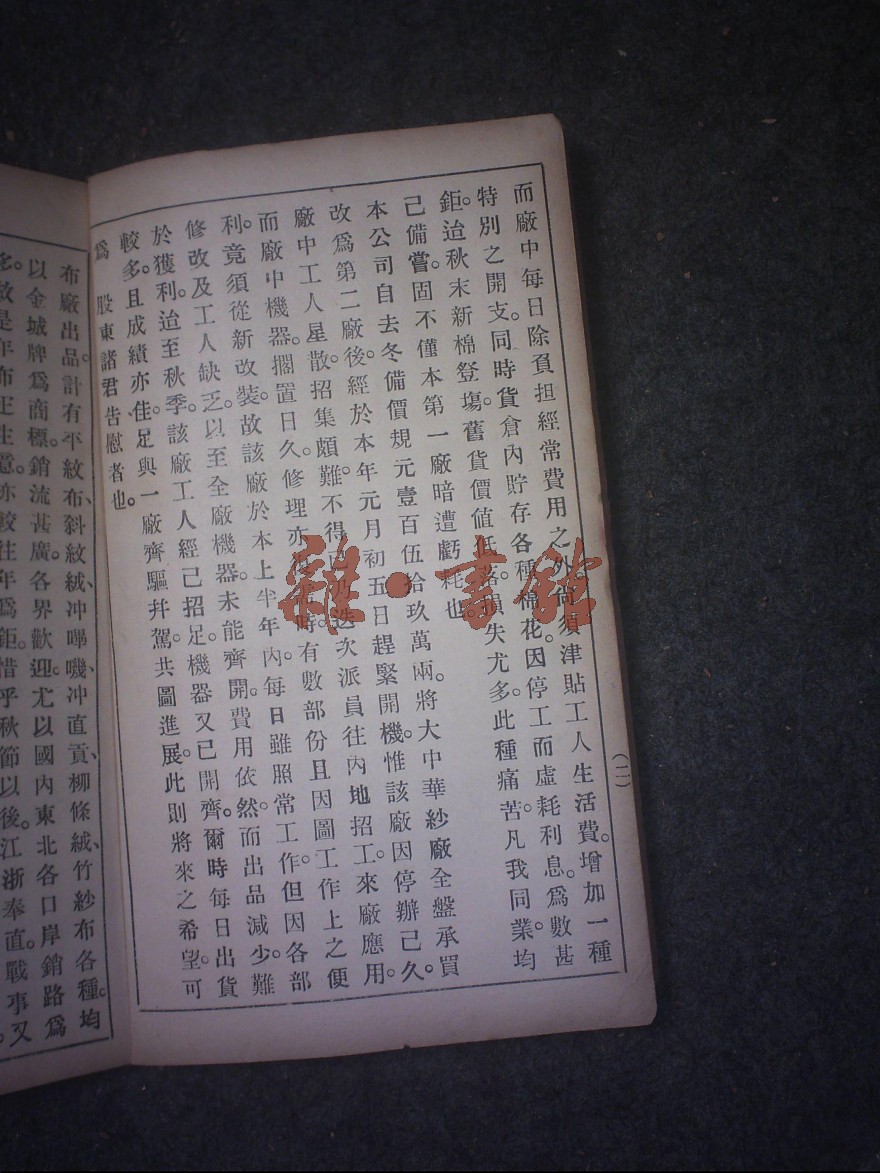 而廠中每日除負担經常費用之外。尙須津貼工人生活費。增加一種
特別之開支。同時貨倉內貯存各種棉花。因停工而虛耗利息。爲數甚
鉅。迨秋末新棉登塲。舊貨價値低落。損失尤多。此種痛苦。凡我同業。均
己備嘗。固不僅本第一廠暗遭虧耗也。
本公司自去冬備價規元壹百伍拾玖萬兩。將大中華紗廠全盤承買
改爲第二廠後。經於本年元月初五日趕緊開機。惟該廠因停辦己久。
廠中工人星散。招集頗難。不得已乃迭次派員往內地招工。來廠應用。
而廠中機器。擱置日久。修理亦。時有數部份且因圖工作上之便
利。竟須從新改裝。故該廠於本上半年內。每日雖照常工作。但因各部
修改及工人缺乏。以至全廠機器。未能齊開。費用依然。而出品減少。難
於獲利。迨至秋季。該廠工人經己招足。機器又已開齊。爾時每日出貨
較多。且成績亦佳。足與一廠齊驅幷駕。共圖進展。此則將來之希望。可
爲　股東諸君告慰者也。
(二)
布廠出品。計有平紋布、斜紋絨、冲嗶嘰、冲直貢、柳條絨、竹紗布各種。均
以金城牌爲商標。銷流甚廣。各界歡迎。尤以國內東北各口岸銷路爲
多。故是年布正生意。亦較往年爲鉅。惜乎秋節以後。江浙奉直。戰事。又
雜·書館